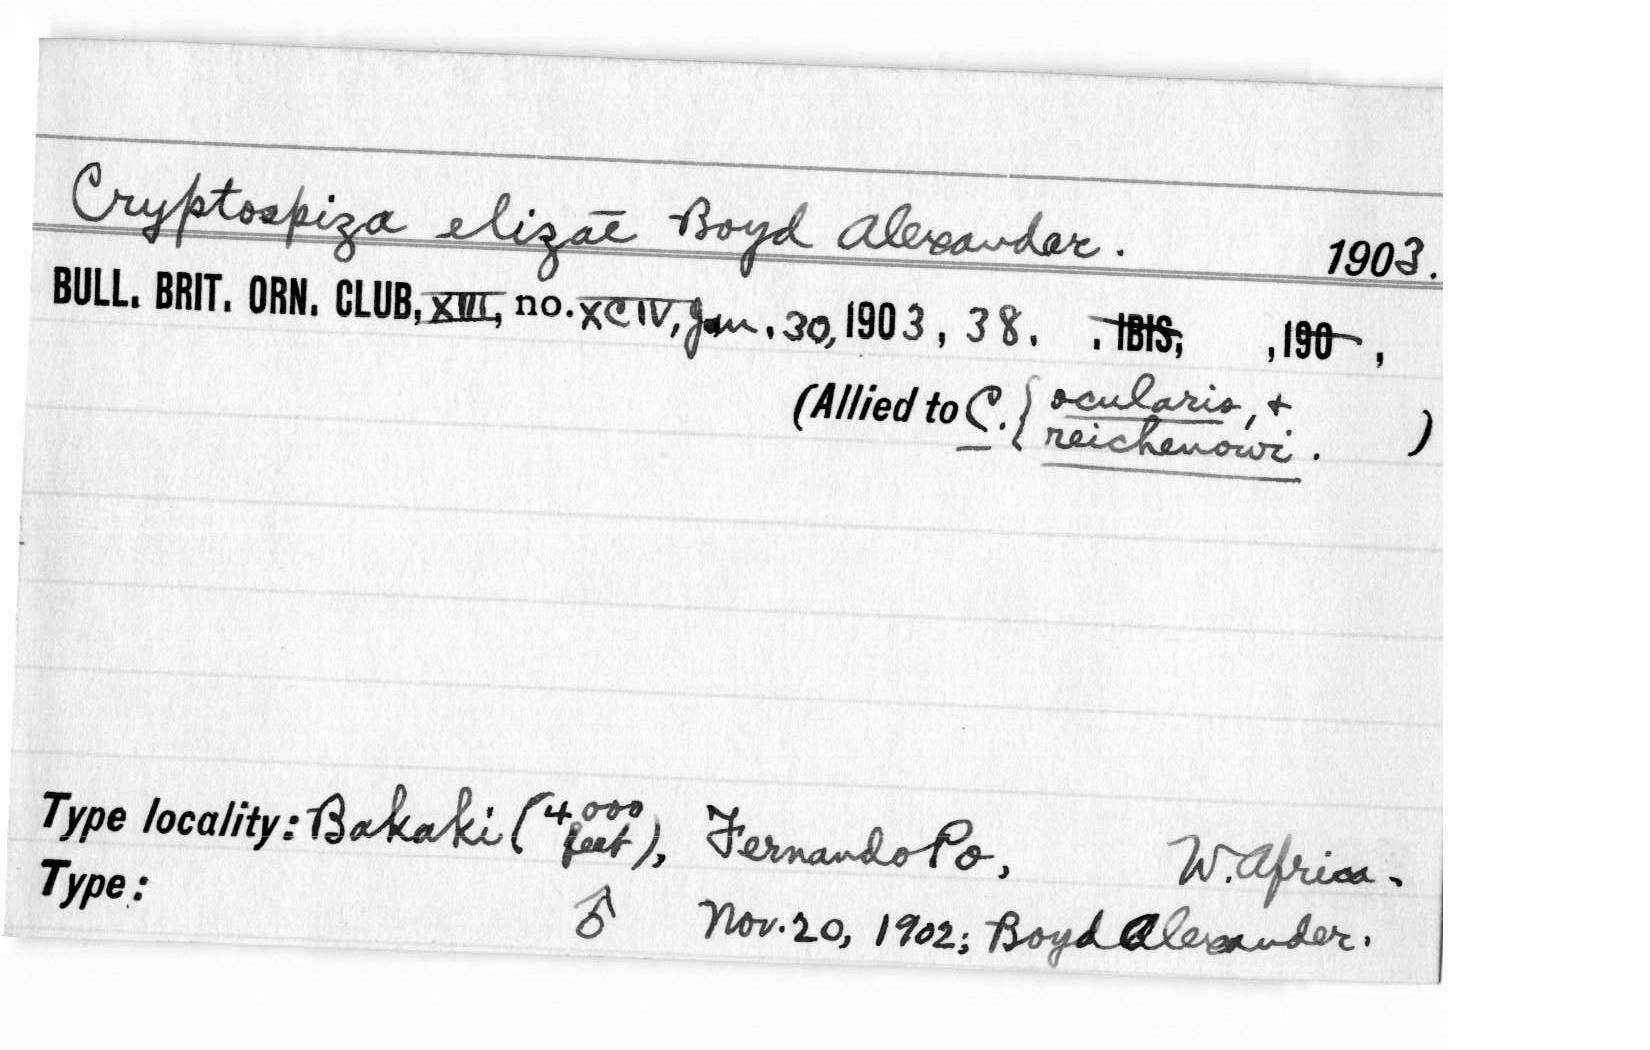 Cryptospiza elizāe Boyd Alexander. 1903.
BULL. BRIT. ORN. CLUB, XIII, no. XCIV, Jan. 30, 1903, 38. . IBIS, ,190 ,
(Allied to C. { ocularis, +
reichenowi. )
Type locality: Bakaki (4000 feet), Fernando Po, W. Africa.
Type: ♂ Nov. 20, 1902; Boyd Alexander.